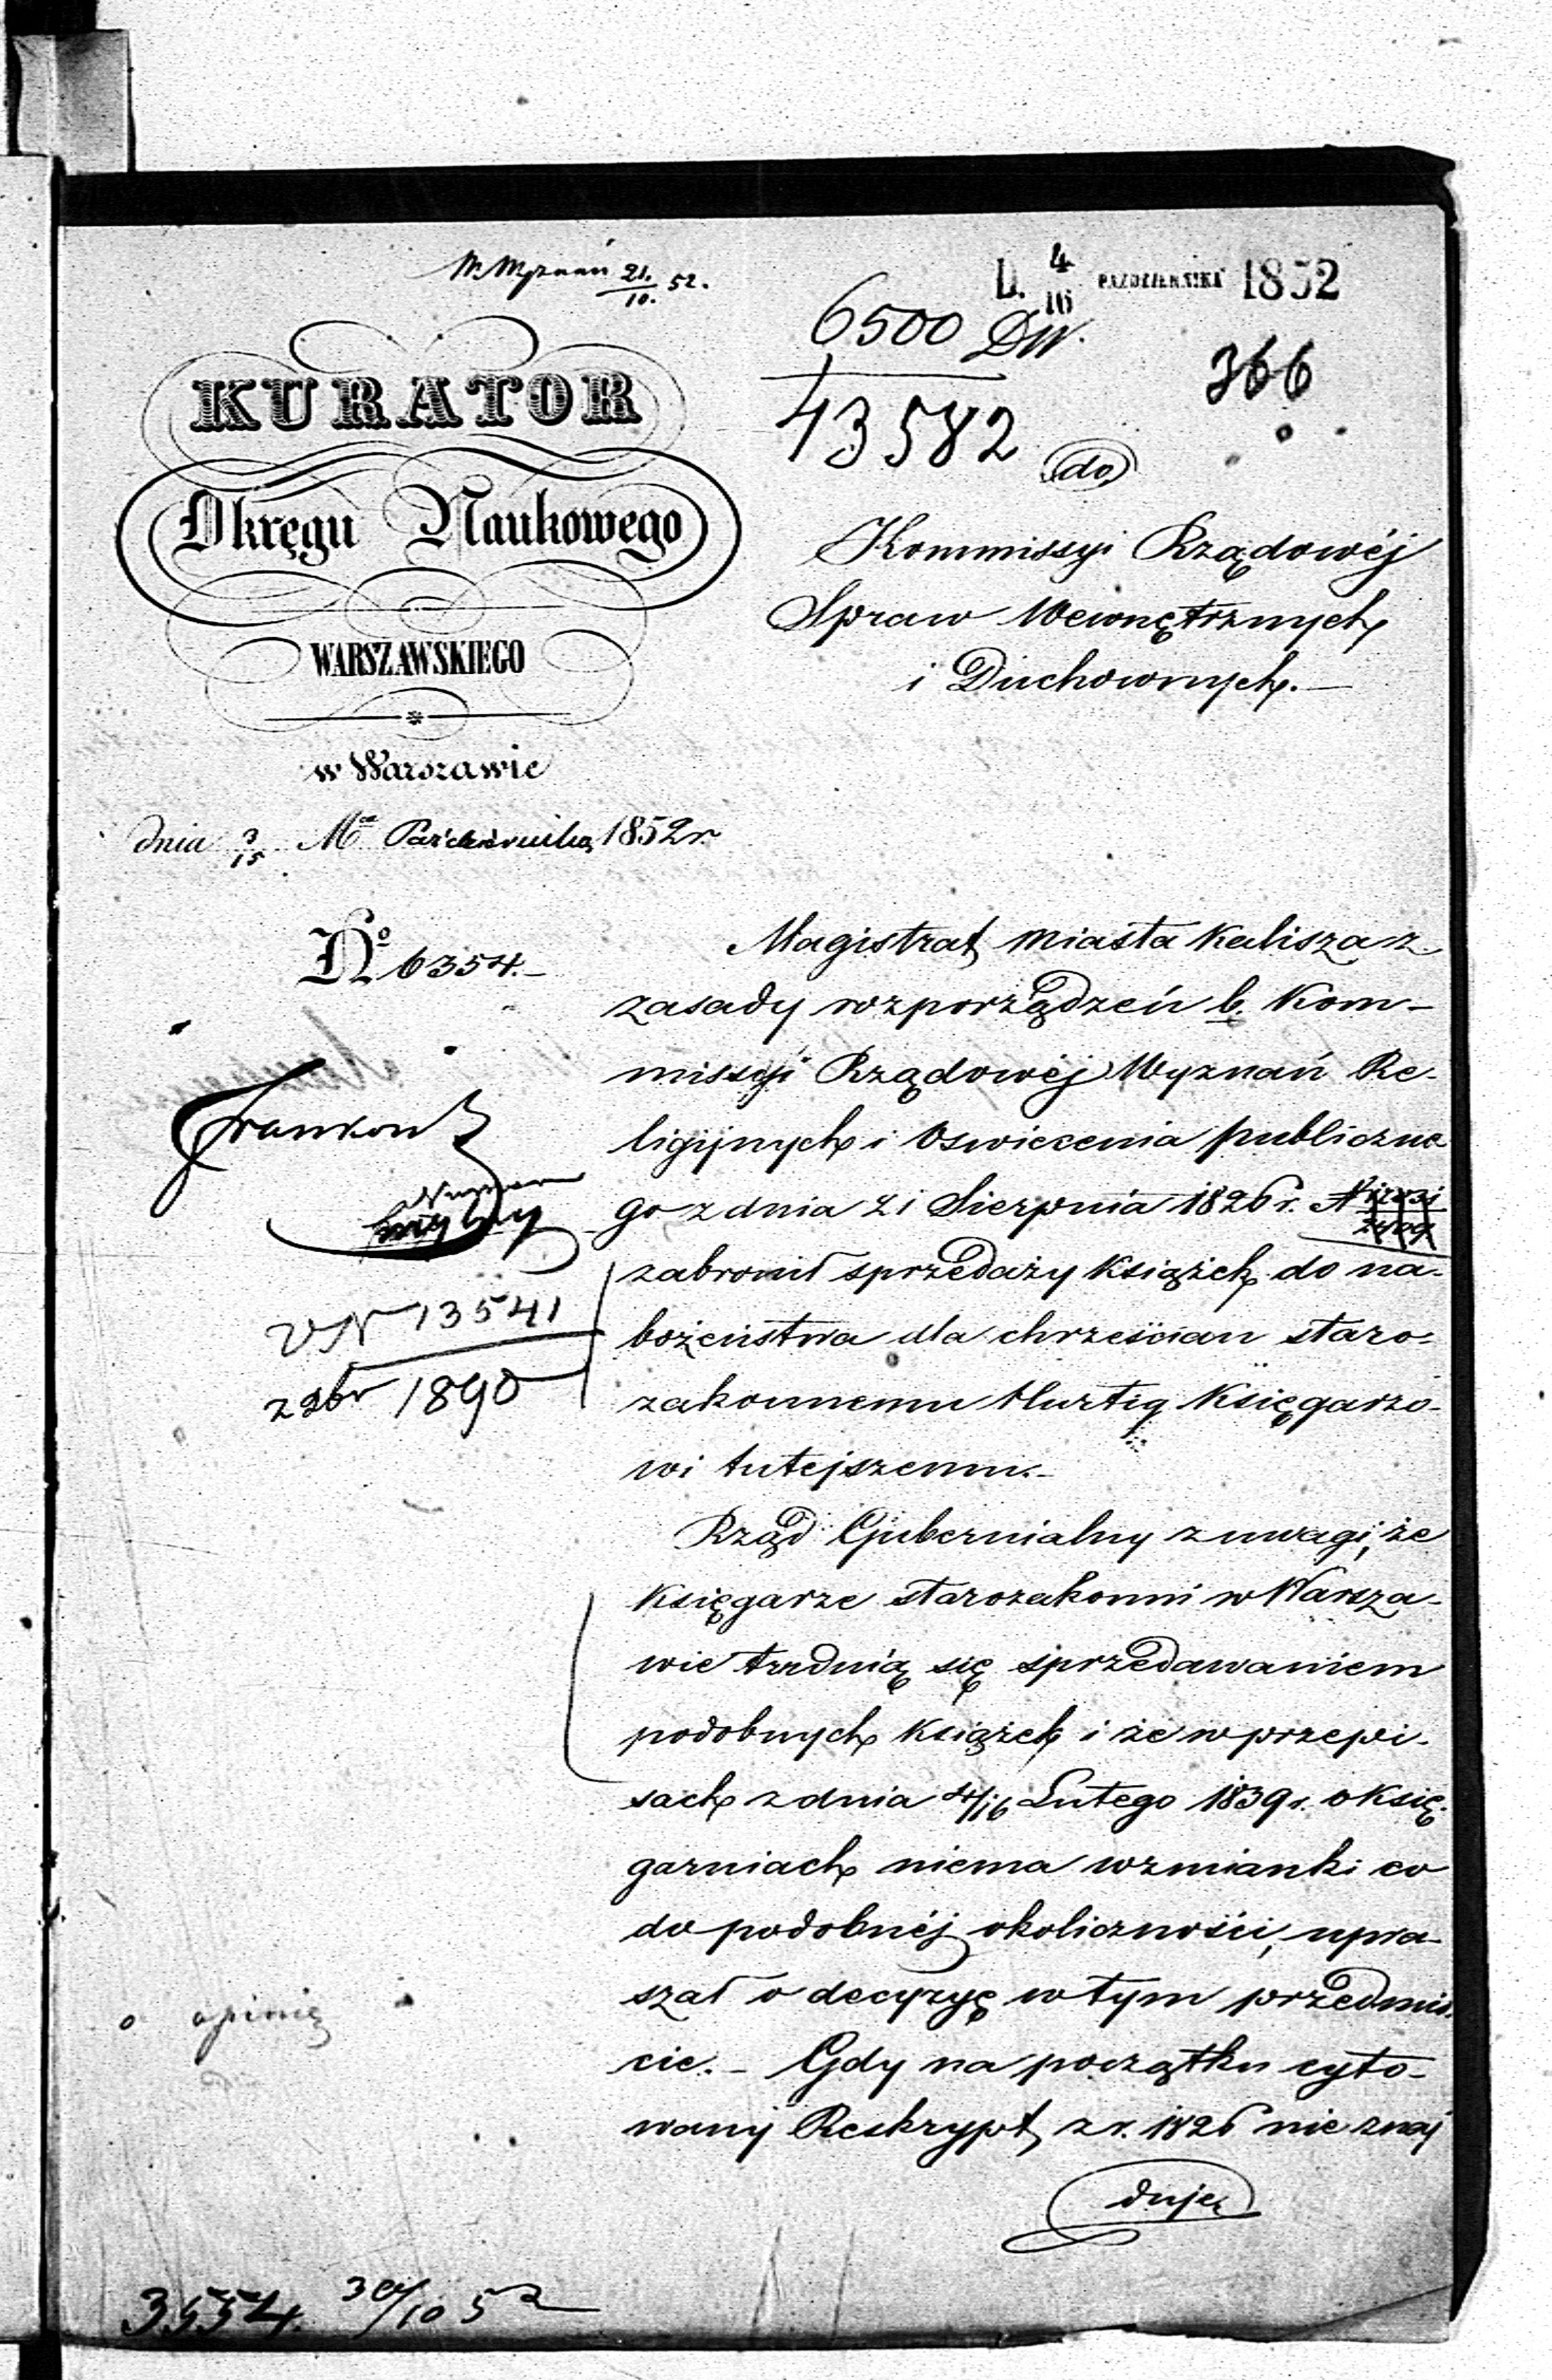 W. Wyznań 21./10. 52.
D. 4/16 PAZDZIERNIKA 1852
6500 DW.
13582
366
KURATOR
Okręgu Naukowego
WARSZAWSKIEGO
w Warszawie
dnia 3/15 Mca Października 1852 r.
No 6354.-
do
Kommissyi Rządowéj
Spraw Wewnętrznych
i Duchownych.-
Magistrat miasta Kalisza z
zasady rozporządzeń b. Kom-
missyi Rządowéj Wyznań Re-
ligijnych i Oswiecenia publiczne
go z dnia 21 Sierpnia 1826 r. N
zabronił sprzedaży Książek do na-
bożeństwa dla chrześcian staro-
zakonnemu Hurtig Księgarzo-
wi tutejszemu.-
Rząd Gubernialny z uwagi, że
Księgarze starozakonni w Warsza-
wie trudnią się sprzedawaniem
podobnych Książek i że w przepi-
sach z dnia 4/16 Lutego 1839 r. o Księ-
garniach niema wzmianki co
do podobnéj okoliczności, upra-
szał o decyzyę w tym przedmio-
cie.- Gdy na początku cyto-
wany Reskrypt z r. 1826 nie znaj
duje
VN 13541
1890
o opinię
3554. 30/10 52